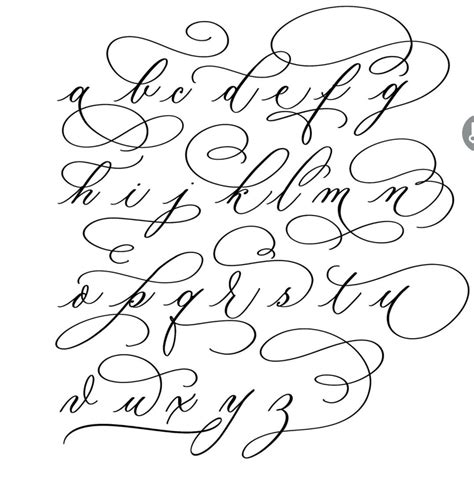 a b c d e f g
h i j k l m n
o p q r s t u
v w x y z